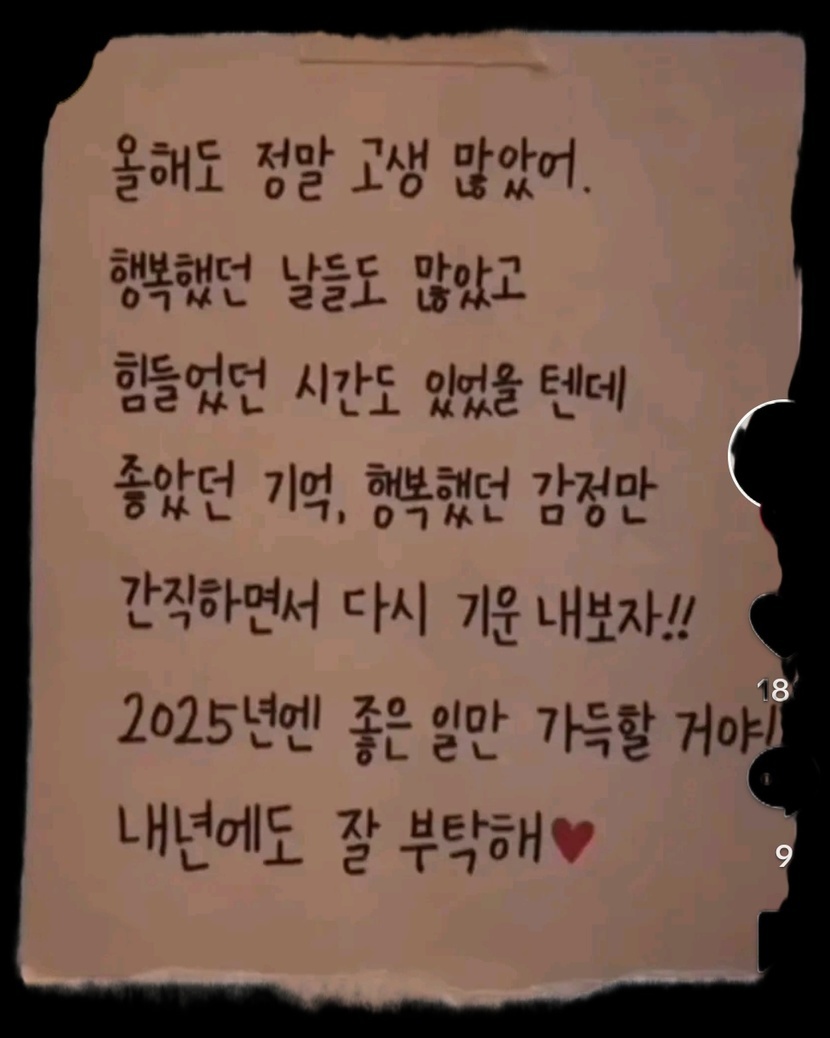 올해도 정말 고생 많았어.
행복했던 날들도 많았고
힘들었던 시간도 있었을 텐데
좋았던 기억, 행복했던 감정만
간직하면서 다시 기운 내보자!!
2025년엔 좋은 일만 가득할 거야!
내년에도 잘 부탁해♥
18
9